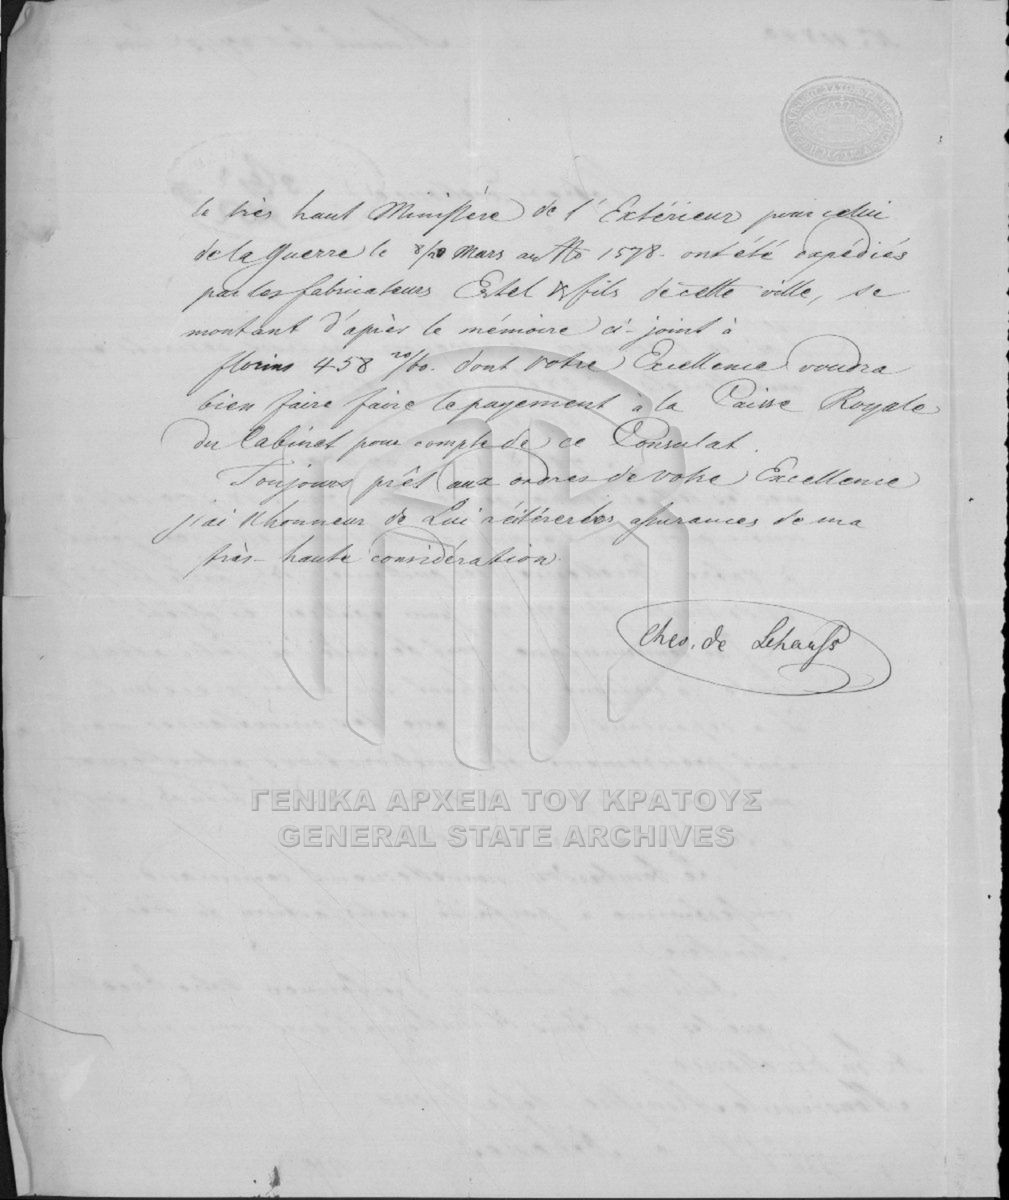 le très haut Ministère de l'Extérieur pour celui
de la Guerre le 8/20 Mars au No 1578. ont été expédiés
par les fabricateurs Ertel & fils de cette ville, se
montant d'après le mémoire ci-joint à
florins 458 20/60. dont Votre Excellence voudra
bien faire faire le payement à la Caisse Royale
du Cabinet pour compte de ce Consulat.
Toujours prêt aux ordres de Votre Excellence
j'ai l'honneur de Lui réitérer les assurances de ma
très-haute considération.
Ches. de
ΓΕΝΙΚΑ ΑΡΧΕΙΑ ΤΟΥ ΚΡΑΤΟΥΣ
GENERAL STATE ARCHIVES